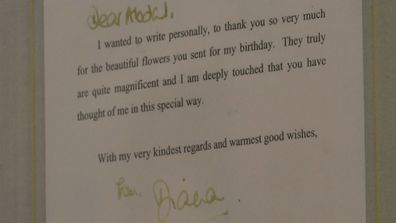 Dear
I wanted to write personally, to thank you so very much
for the beautiful flowers you sent for my birthday. They truly
are quite magnificent and I am deeply touched that you have
thought of me in this special way.
With my very kindest regards and warmest good wishes,
from Diana.